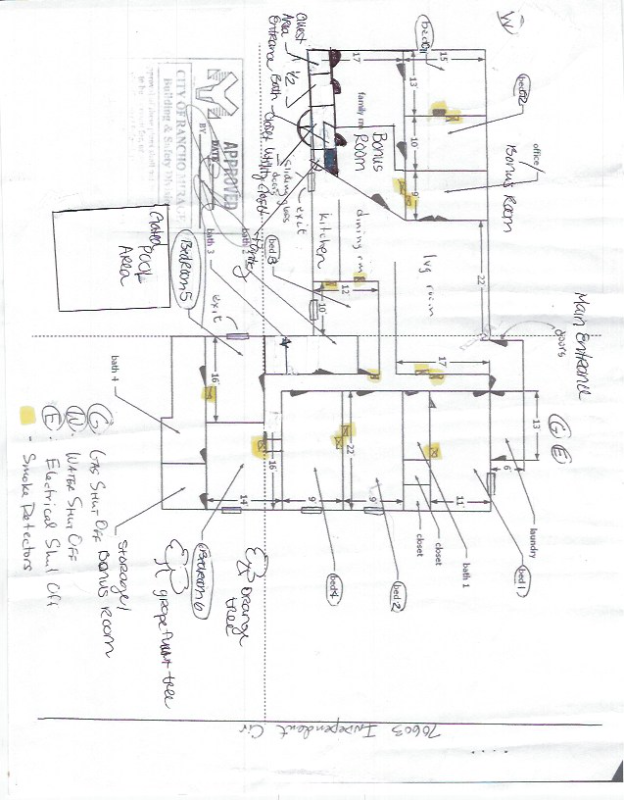 W
Main Entrance
doors
G E
office/
Bonus Room
bed
bed
15
13
10
9
22
17
family rm
Bonus
Room
dining rm
lvg room
kitchen
12
10
17
Guest
Area
Entrance
1/2
Bath
Closet
Utility closet
Sliding glass
doors
exit
Pantry
bed 3
bath 2
bath 3
Bedroom 5
exit
Gated
pool
Area
APPROVED
BY
DATE
CITY OF RANCHO MIRAGE
Building & Safety
16
16
14
9'
22
9'
11'
13
6'
laundry
bed 1
bath 1
closet
closet
bed 2
bed 4
Bedroom 6
bath 4
Storage/
Bonus Room
Orange
tree
grapefruit tree
G: Gas Shut Off
W: Water Shut Off
E: Electrical Shut Off
- Smoke Detectors
70605 Independent Cir